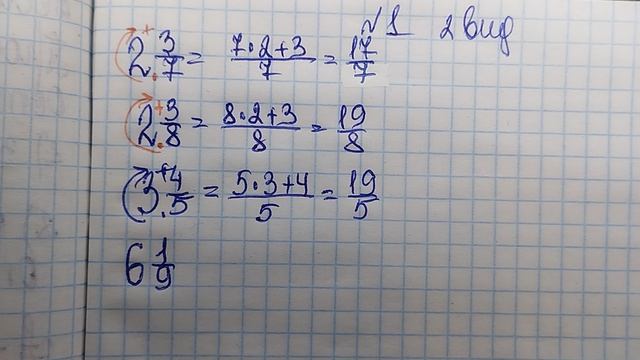 √1 2 вид
2 3/7 = 7·2+3/7 = 17/7
2 3/8 = 8·2+3/8 = 19/8
3 4/5 = 5·3+4/5 = 19/5
6 1/9